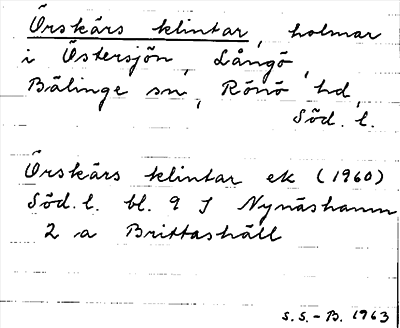 Örskärs klintar, holmar
i Östersjön, Långö,
Bälinge sn, Rönö hd,
Söd. l.
Örskärs klintar ek (1960)
Söd. l. bl. 9 J Nynäshamn
2 a Brittashäll
S.S.-B. 1963